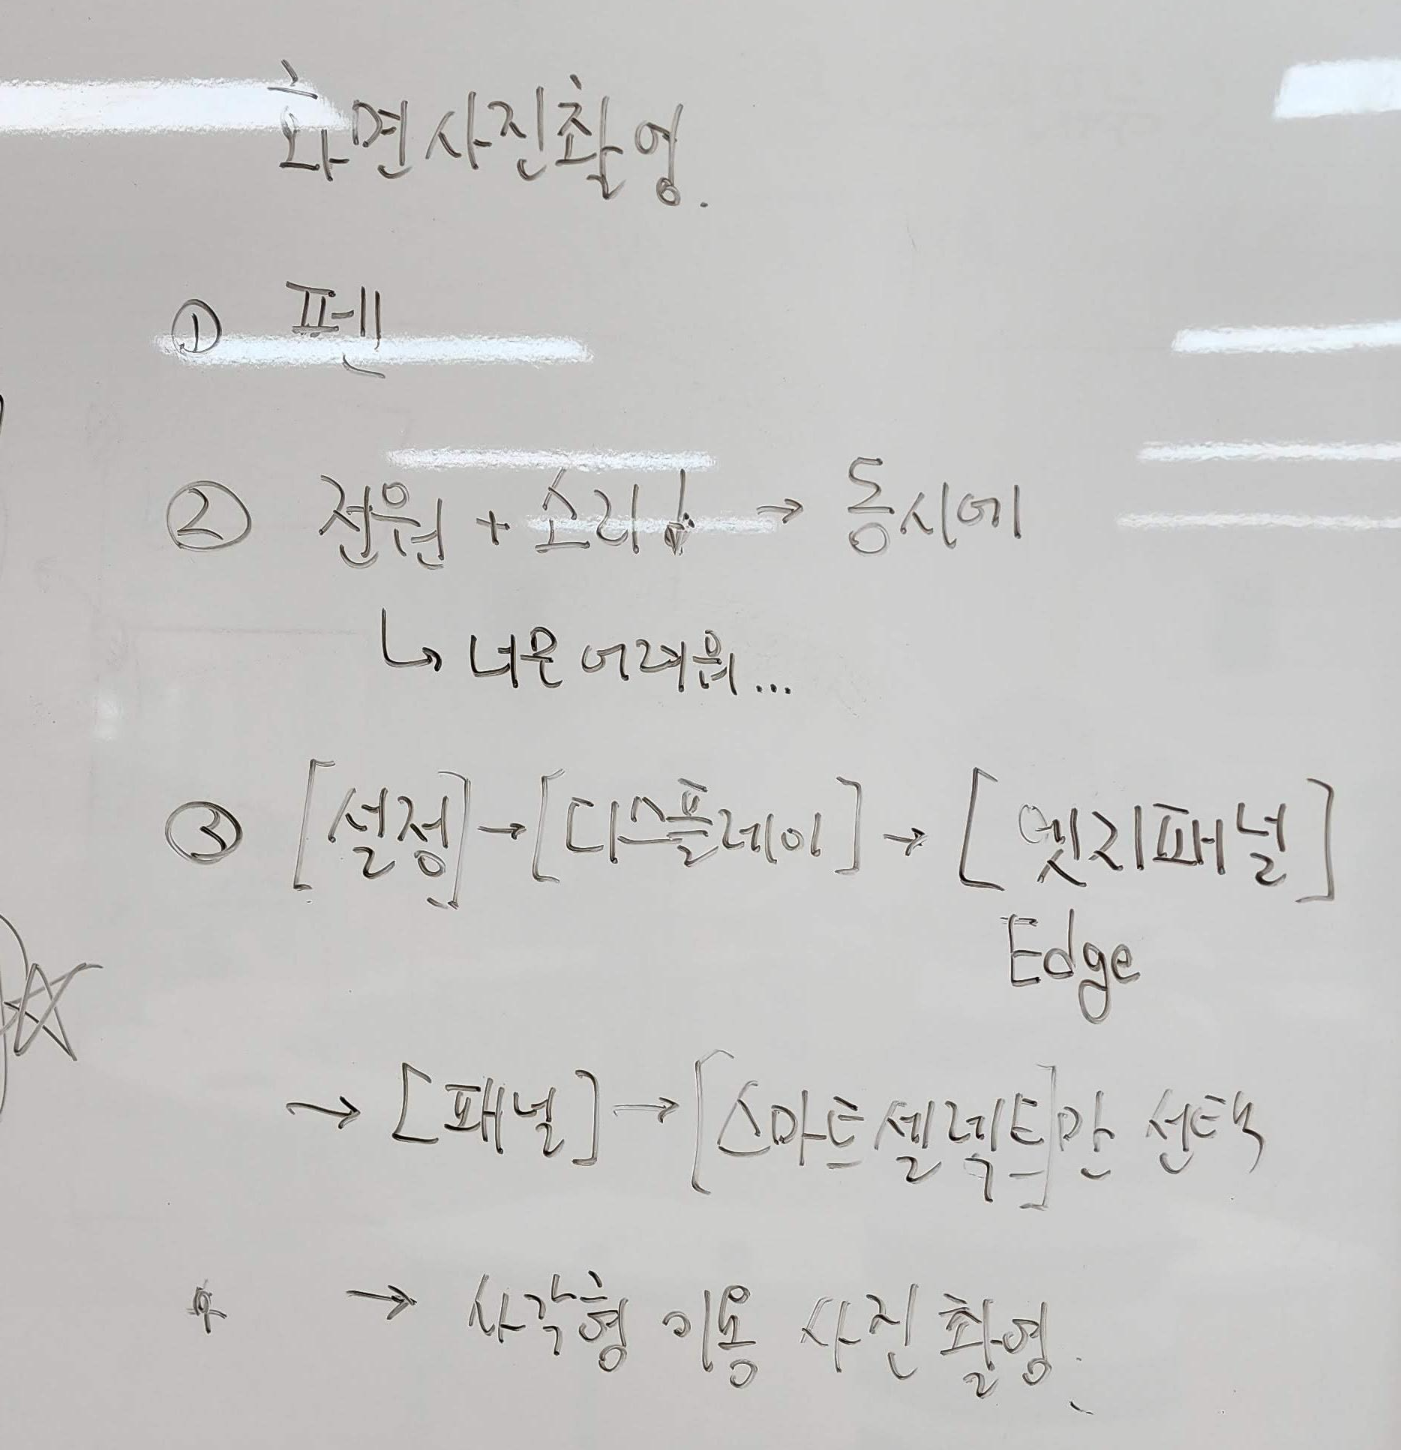 화면사진촬영.
① 펜
② 전원 + 소리↓ → 동시에
↳ 너은 어려워...
③ [설정]→[디스플레이]→[엣지패널]
Edge
→[패널]→[스마트셀렉트]만 선택
→ 사각형 이용 사진 촬영.